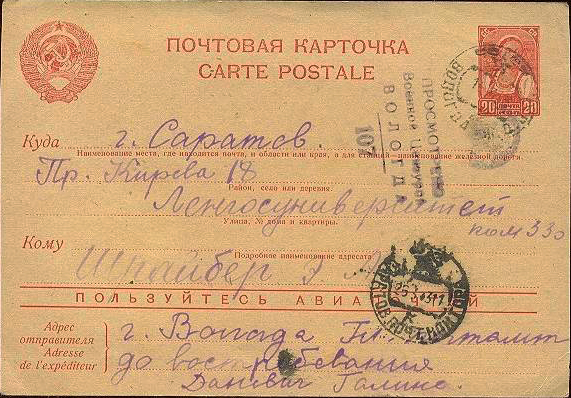 ПОЧТОВАЯ КАРТОЧКА
CARTE POSTALE
ПОЧТА
20 20
ПРОСМОТРЕНО
Военной Цензурой
ВОЛОГДА
107
Куда г. Саратов.
Наименование места, где находится почта, и области или края, а для станций—наименование железной дороги.
Пр. Кирова 18
Район, село или деревня.
Ленгосуниверситет
Улица, № дома и квартиры.
ком 330
Кому
Подробное наименование адресата
Шнайбер
ПОЛЬЗУЙТЕСЬ АВИА
Адрес отправителя
Adresse de l'expéditeur
г. Вологда
до востребования
Даневич Галина.